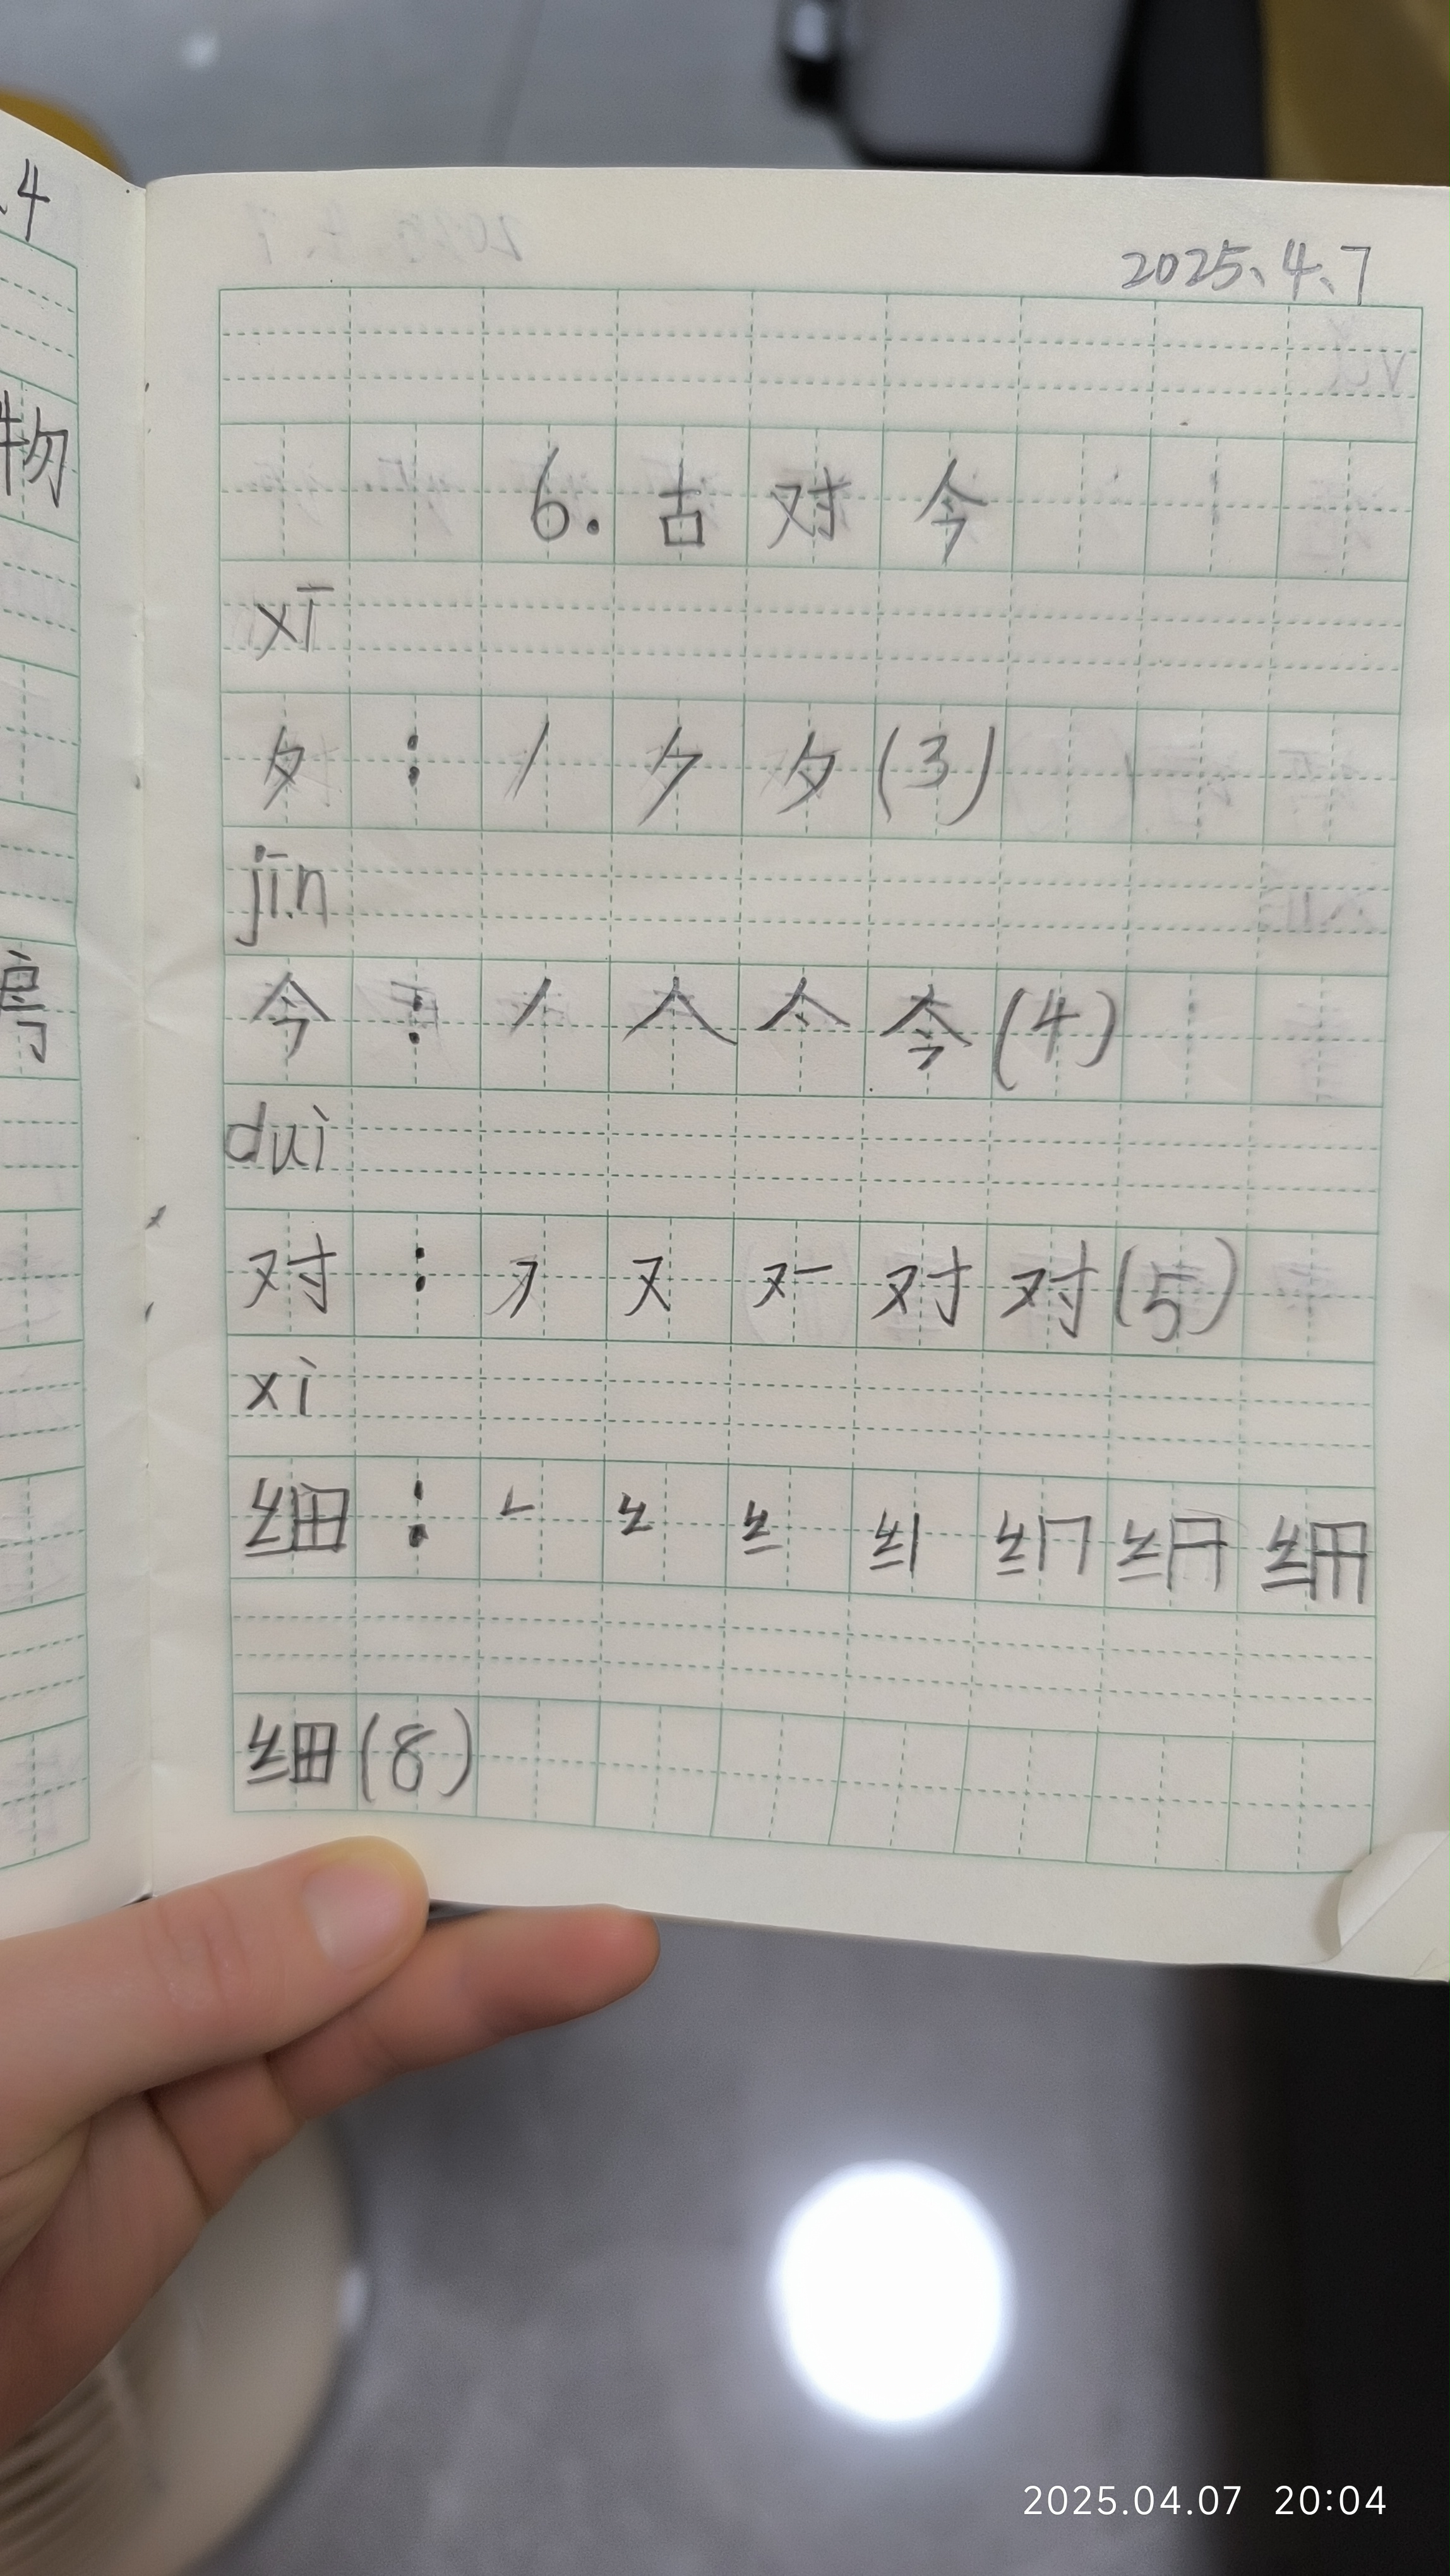 .4
物
2025、4、7
6.古对今
xī
夕：丿 𠂊 夕(3)
jīn
今：丿 人 亽 今(4)
duì
对：㇇ 又 对 对(5)
xì
细：纟 细
细(8)
2025.04.07 20:04